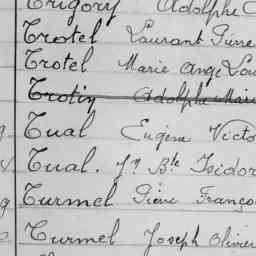 Trigory Adolphe
Trotel Laurant Pierre
Trotel Marie Ange Lou
Trotin Adolphe Marie
Tual Eugène Victo
Tual. Jn Bte Isidor
Turmel Pierre Franço
Turmel Joseph Olivier